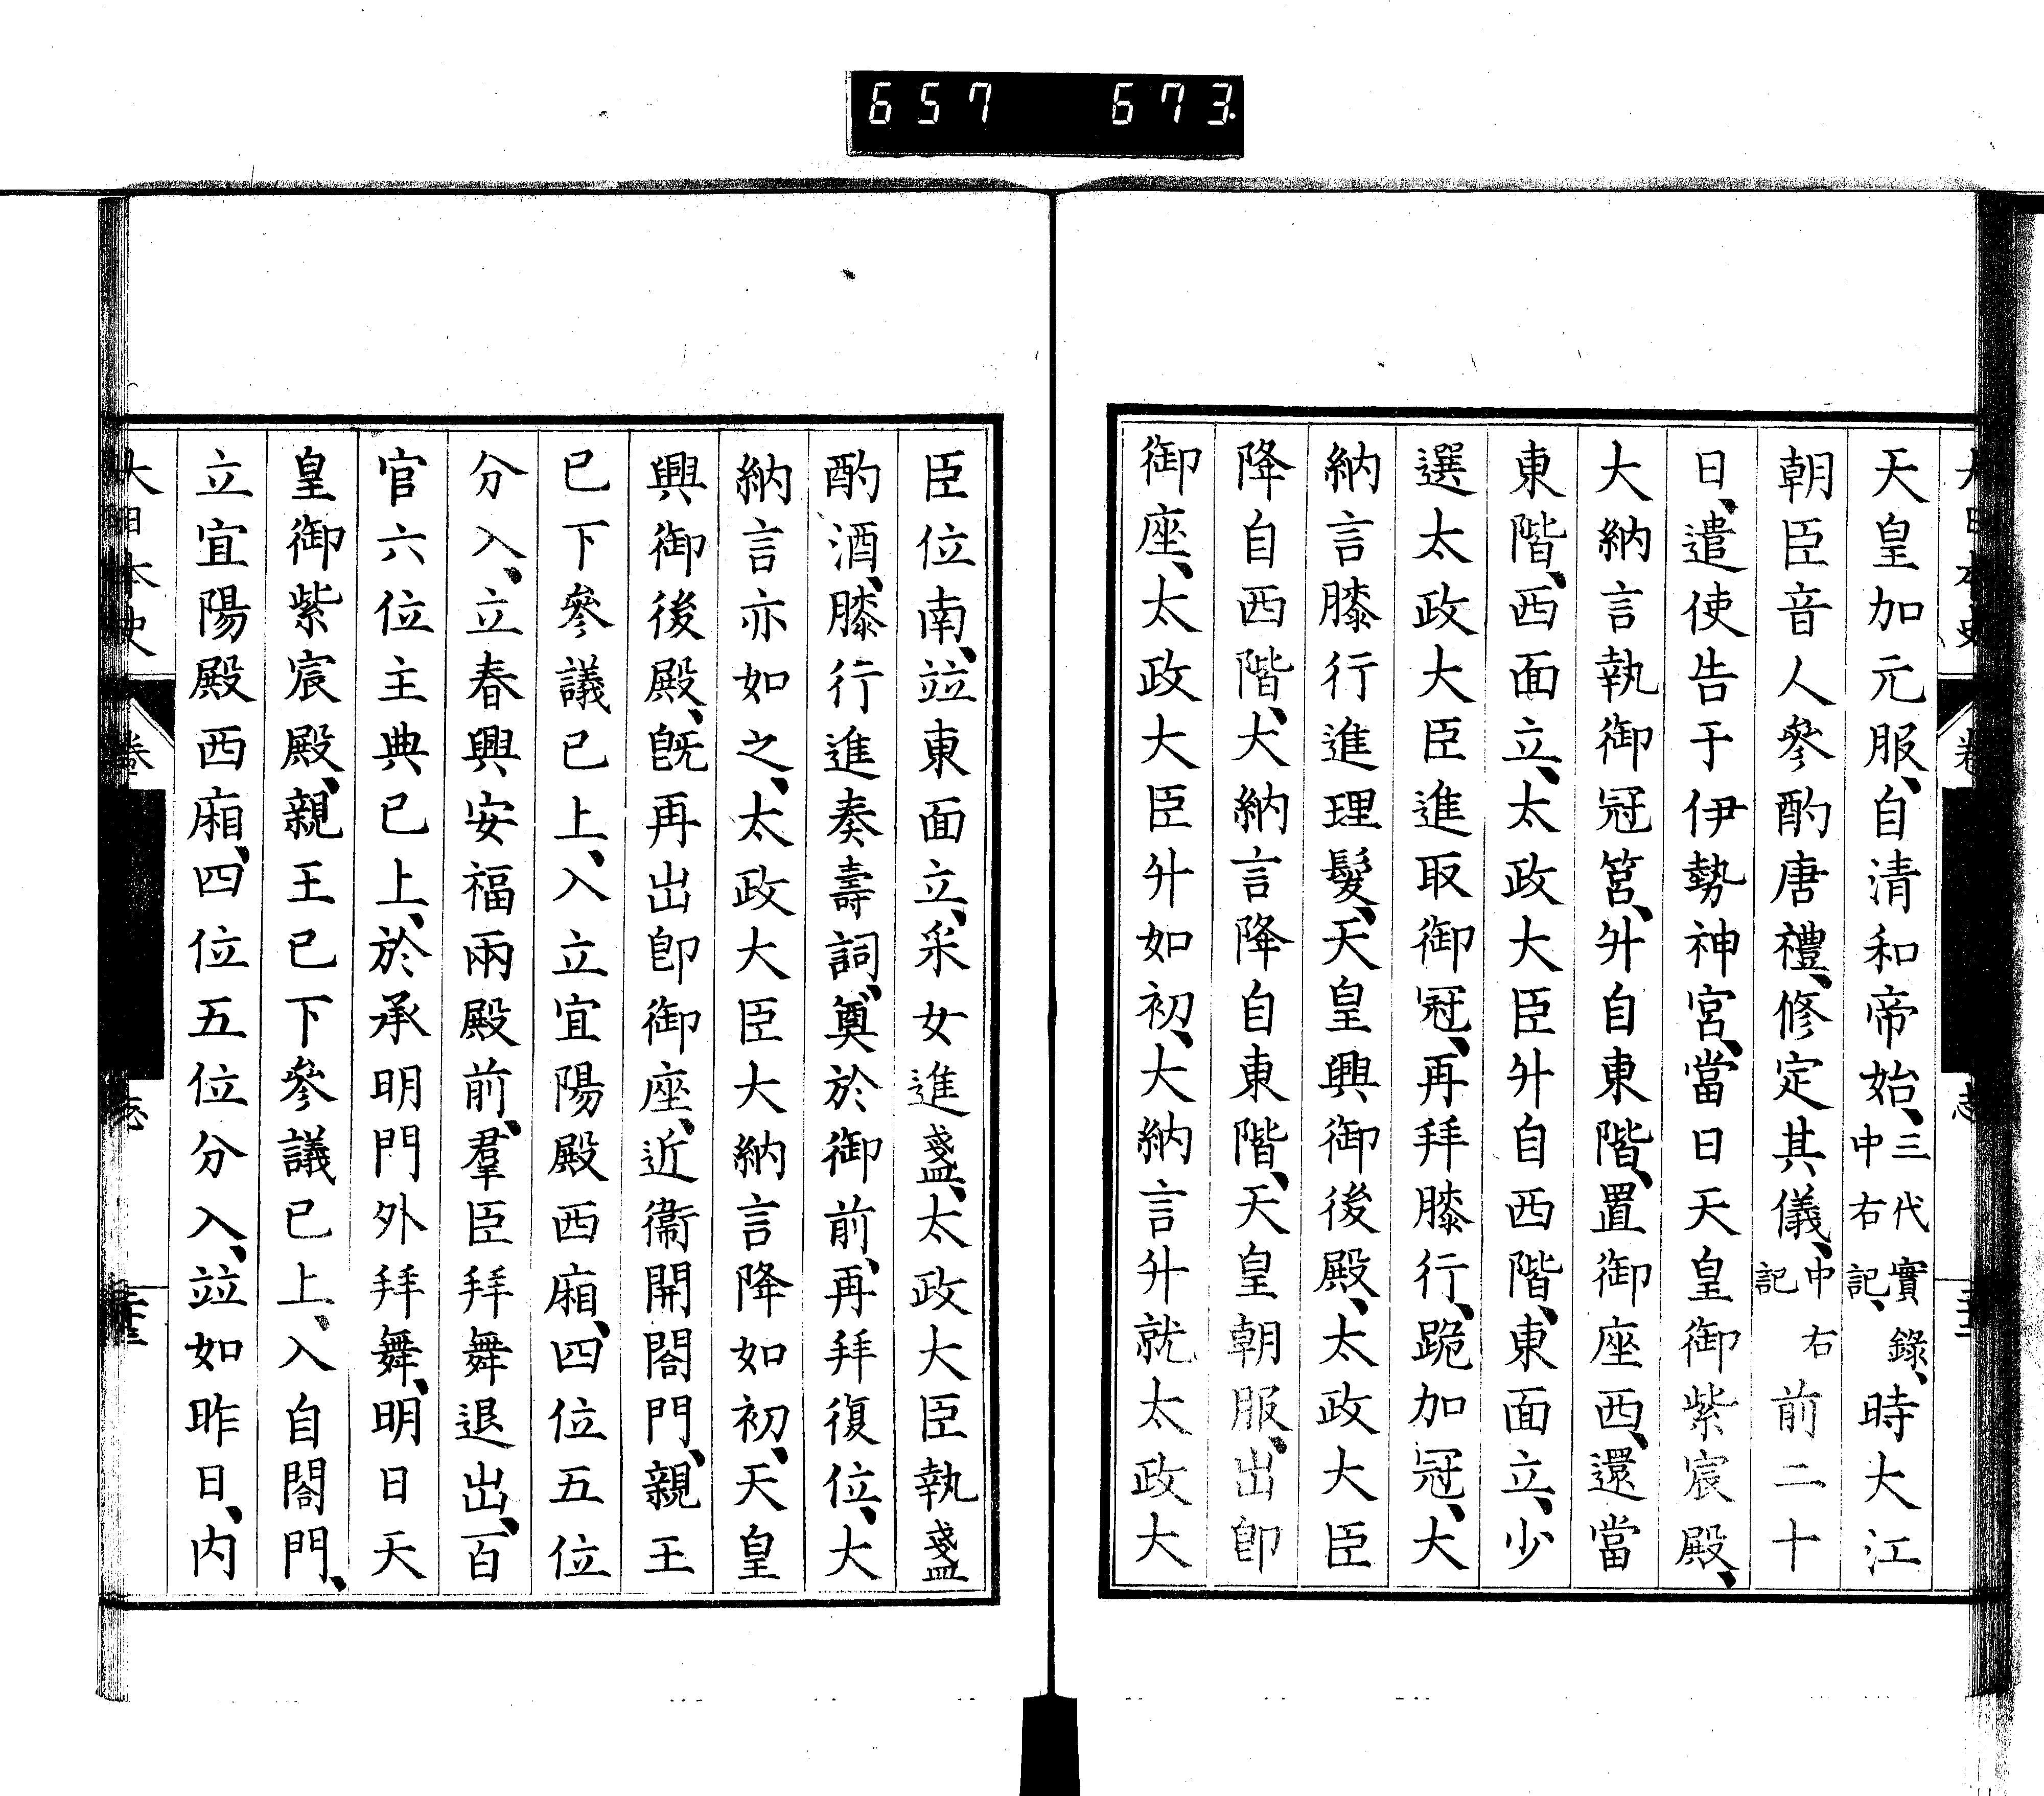 657 673
天皇加元服、自清和帝始、三代實錄、中右記、時大江
朝臣音人參酌唐禮、修定其儀、中右記前二十
日、遣使告于伊勢神宮、當日天皇御紫宸殿、
大納言執御冠筥、升自東階、置御座西、還當
東階、西面立、太政大臣升自西階、東面立、少
選太政大臣進取御冠、再拜膝行、跪加冠、大
納言膝行進理髮、天皇興御後殿、太政大臣
降自西階、大納言降自東階、天皇朝服、出卽
御座、太政大臣升如初、大納言升就太政大
臣位南、竝東面立、采女進盞、太政大臣執盞
酌酒、膝行進奏壽詞、奠於御前、再拜復位、大
納言亦如之、太政大臣大納言降如初、天皇
興御後殿、旣再出卽御座、近衞開閤門、親王
已下參議已上、入立宜陽殿西廂、四位五位
分入、立春興安福兩殿前、羣臣拜舞退出、百
官六位主典已上、於承明門外拜舞、明日天
皇御紫宸殿、親王已下參議已上、入自閤門、
立宜陽殿西廂、四位五位分入、竝如昨日、内
大日本史 卷 志